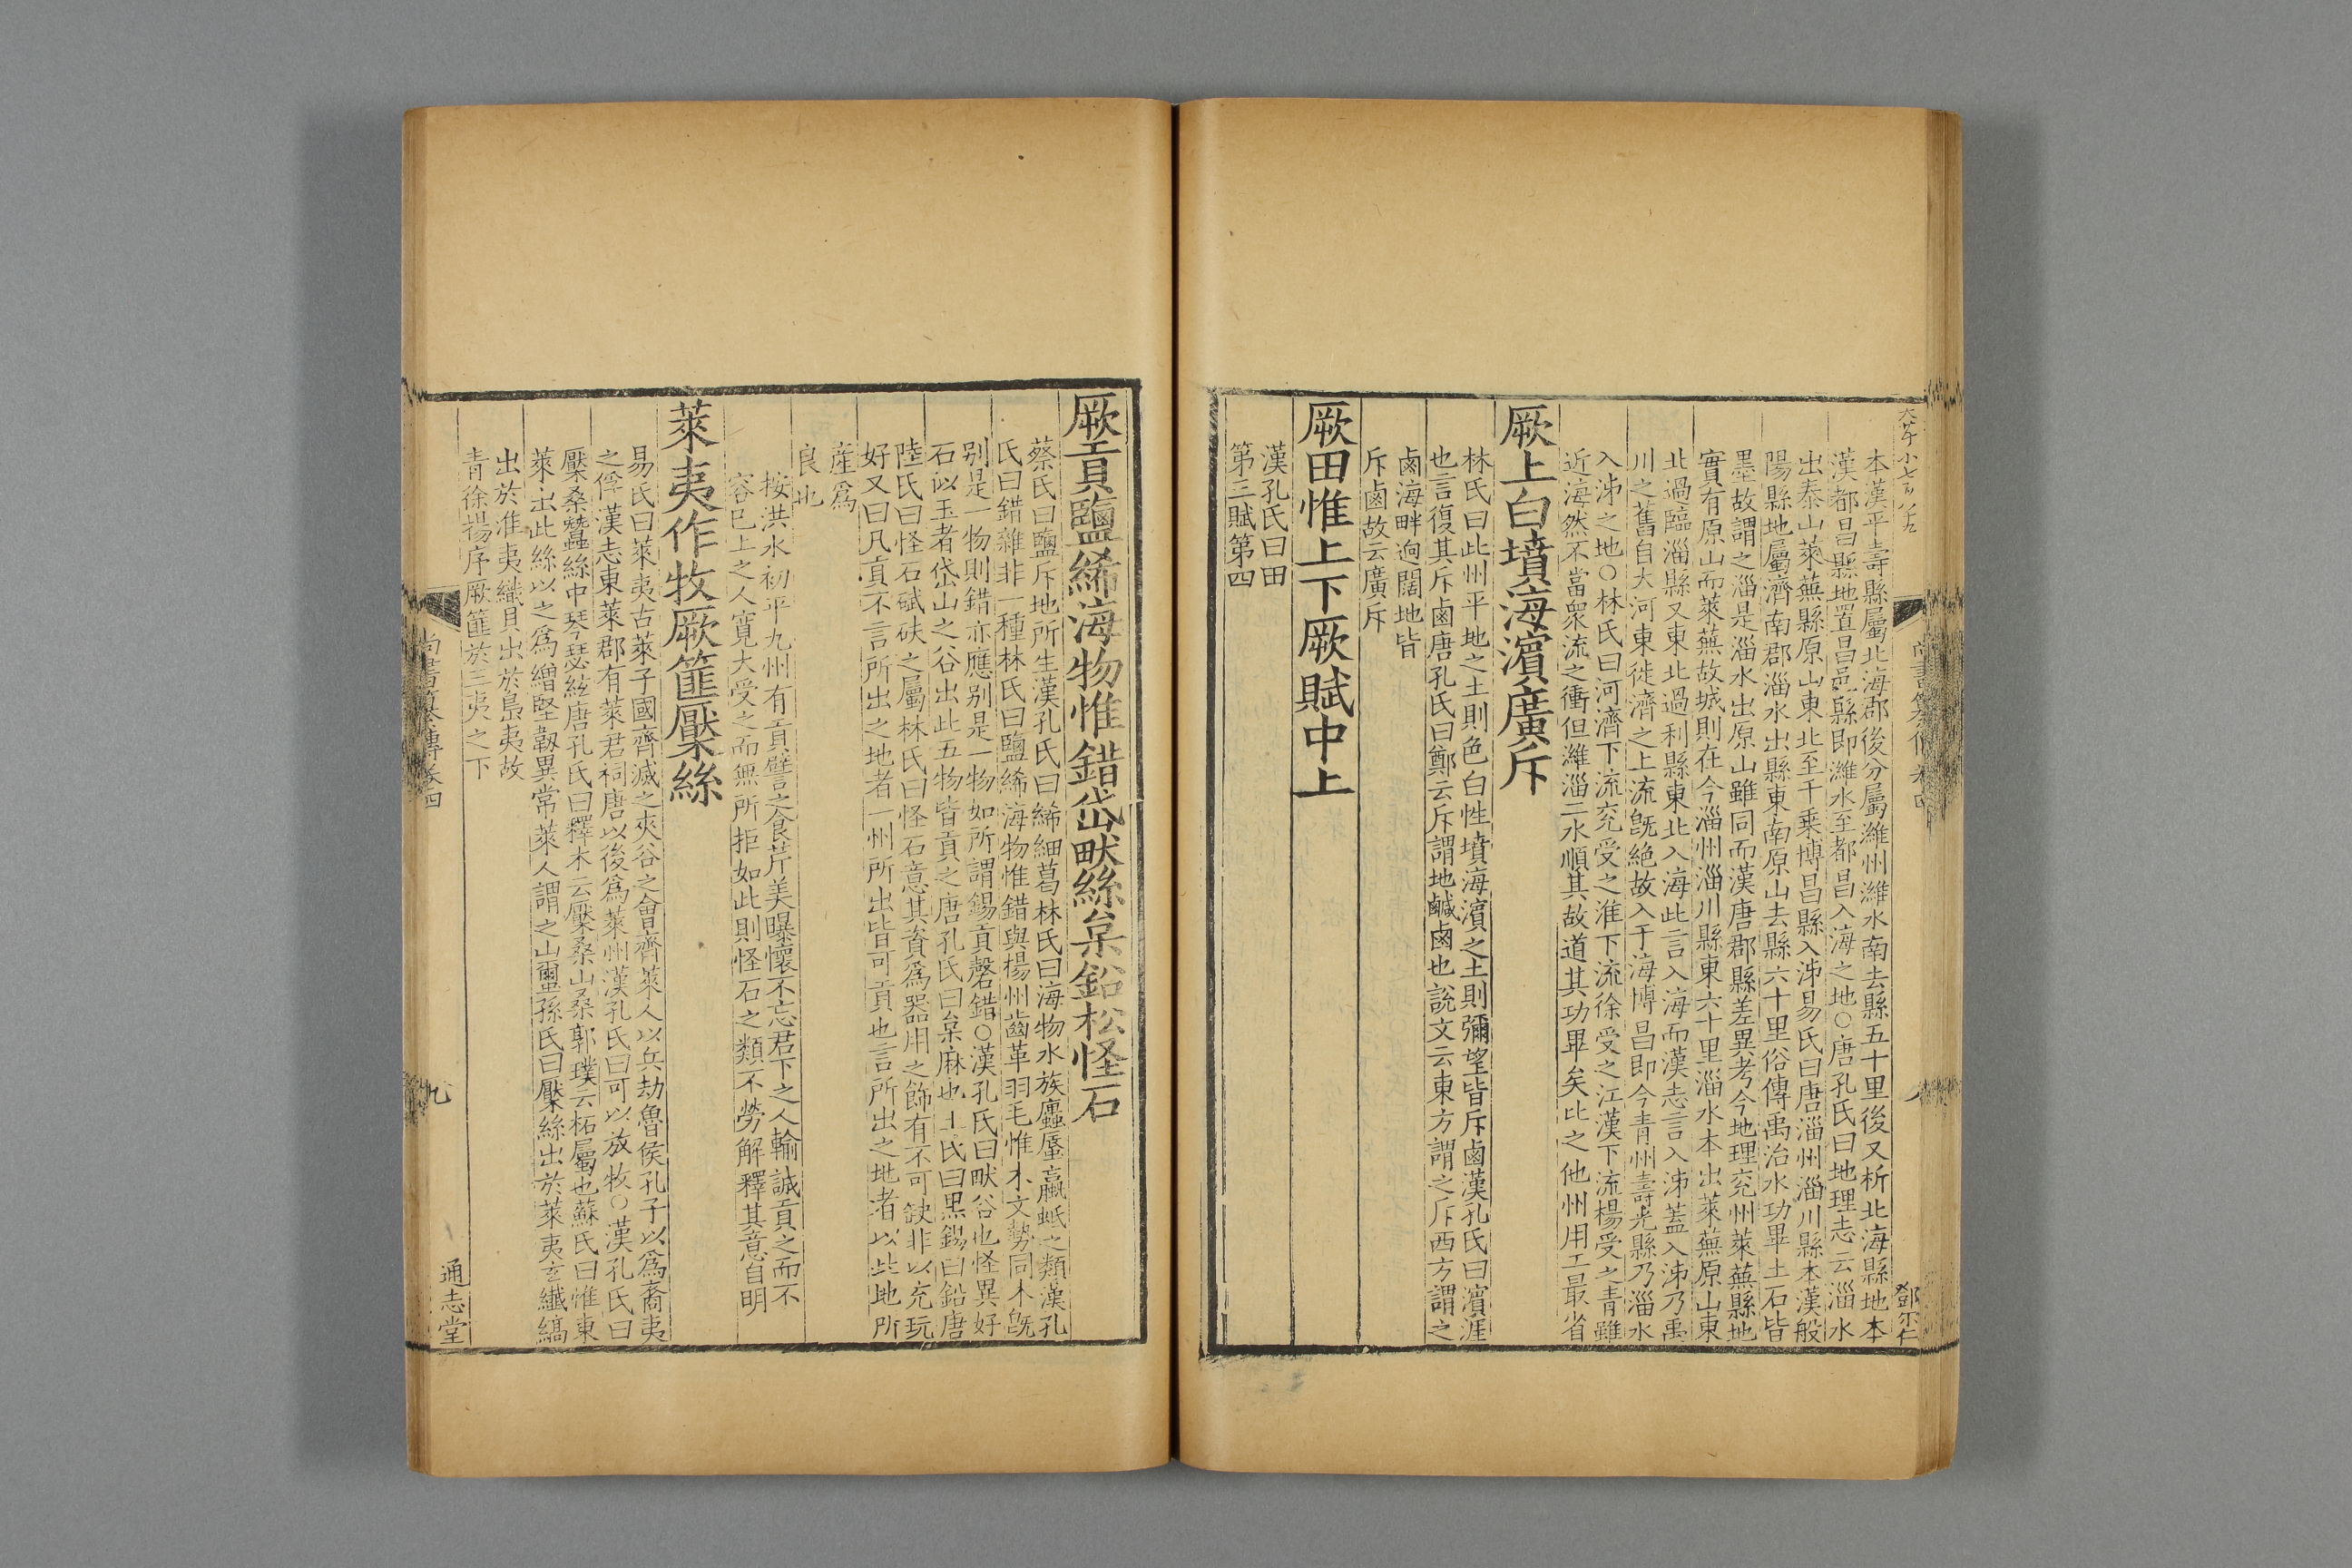 本漢平壽縣屬北海郡後分屬濰州濰水南去縣五十里後又析北海縣地本
漢都昌縣地置昌邑縣即濰水至都昌入海之地○唐孔氏曰地理志云淄水
出泰山萊蕪縣原山東北至千乗博昌縣入泲易氏曰唐淄州淄川縣本漢般
陽縣地屬濟南郡淄水出縣東南原山去縣六十里俗傳禹治水功畢土石皆
墨故謂之淄是淄水出原山雖同而漢唐郡縣差異考今地理兖州萊蕪縣地
實有原山而萊蕪故城則在今淄州淄川縣東六十里淄水本出萊蕪原山東
北過臨淄縣又東北過利縣東北入海此言入海而漢志言入泲蓋入泲乃禹
川之舊自大河東徙濟之上流旣絶故入于海博昌即今青州壽光縣乃淄水
入泲之地○林氏曰河濟下流兖受之淮下流徐受之江漢下流楊受之青雖
近海然不當衆流之衝但濰淄二水順其故道其功畢矣比之他州用工最省
厥土白墳海濱廣斥
林氏曰此州平地之土則色白性墳海濱之土則彌望皆斥鹵漢孔氏曰濱涯
也言復其斥鹵唐孔氏曰鄭云斥謂地鹹鹵也說文云東方謂之斥西方謂之
鹵海畔逈闊地皆
斥鹵故云廣斥
厥田惟上下厥賦中上
漢孔氏曰田
第三賦第四
厥貢鹽絺海物惟錯岱畎絲枲鉛松怪石
蔡氏曰鹽斥地所生漢孔氏曰絺細葛林氏曰海物水族龐蜃蠃蚳之類漢孔
氏曰錯雜非一種林氏曰鹽絺海物惟錯與楊州齒革羽毛惟木文勢同木旣
别是一物則錯亦應别是一物如所謂錫貢磬錯○漢孔氏曰畎谷也怪異好
石似玉者岱山之谷出此五物皆貢之唐孔氏曰枲麻也士氏曰黑錫曰鉛唐
陸氏曰怪石碔砆之屬林氏曰怪石意其資爲器用之飾有不可缺非以充玩
好又曰凡貢不言所出之地者一州所出皆可貢也言所出之地者以此地所
産爲
良也
按洪水初平九州有貢譬之食芹美曝懷不忘君下之人輸誠貢之而不
容已上之人寛大受之而無所拒如此則怪石之類不勞解釋其意自明
萊夷作牧厥篚檿絲
易氏曰萊夷古萊子國齊滅之夾谷之會齊萊人以兵劫魯侯孔子以爲裔夷
之俘漢志東萊郡有萊君祠唐以後爲萊州漢孔氏曰可以放牧○漢孔氏曰
檿桑蠶絲中琴瑟絃唐孔氏曰釋木云檿桑山桑郭璞云柘屬也蘇氏曰惟東
萊出此絲以之爲繒堅韌異常萊人謂之山䌳孫氏曰檿絲出於萊夷玄纎縞
出於淮夷織貝出於島夷故
青徐揚序厥篚於三夷之下
尚書纂傳卷四
九
通志堂